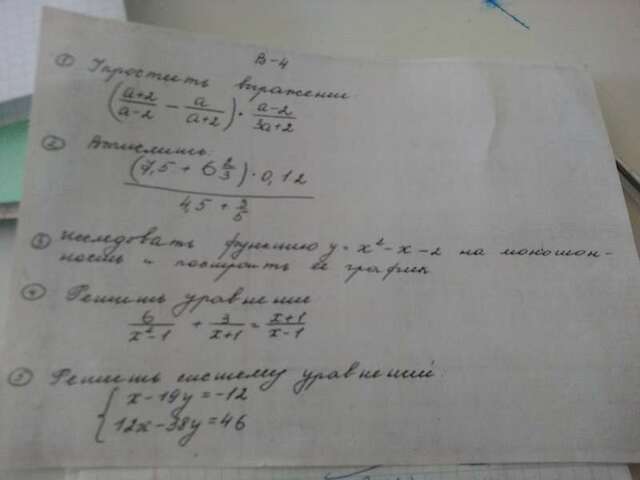 В-4
① Упростить выражение:
(a+2/a-2 - a/a+2) · a-2/3a+2
② Вычислить:
(7,5 + 6 2/3) · 0,12
4,5 + 2/5
③ исследовать функцию y = x² - x - 2 на монотон-
ность и построить её график
④ Решить уравнение
6/x²-1 + 3/x+1 = x+1/x-1
⑤ Решить систему уравнений:
{ x - 19y = -12
12x - 38y = 46